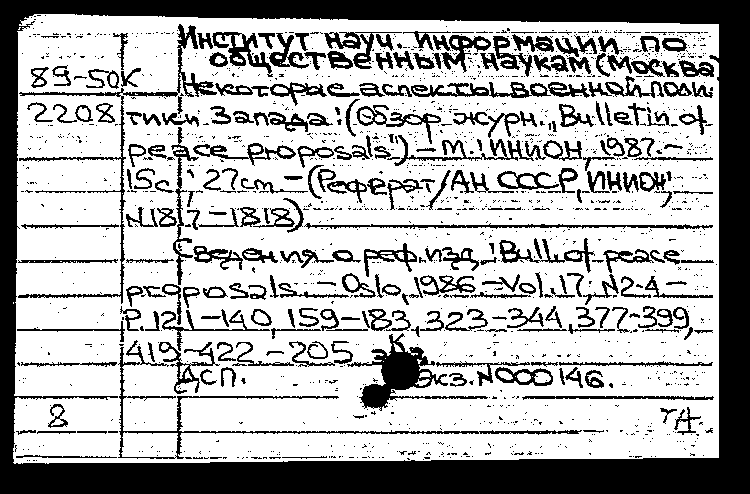 Институт науч. информации по
общественным наукам (Москва)
89-50К Некоторые аспекты военной поли-
2208 тики Запада: (Обзор журн. „Bulletin of
peace proposals") – М.: ИНИОН, 1987. –
15с.; 27см. – (Реферат / АН СССР, ИНИОН;
N1817 – 1818).
Сведения о реф. изд.: Bull. of peace
proposals. – Oslo, 1986. – Vol. 17; N2-4 –
P. 121-140, 159-183, 323-344, 377-399,
419-422. – 205 экз.
К
ДСП. Экз. N000146.
8